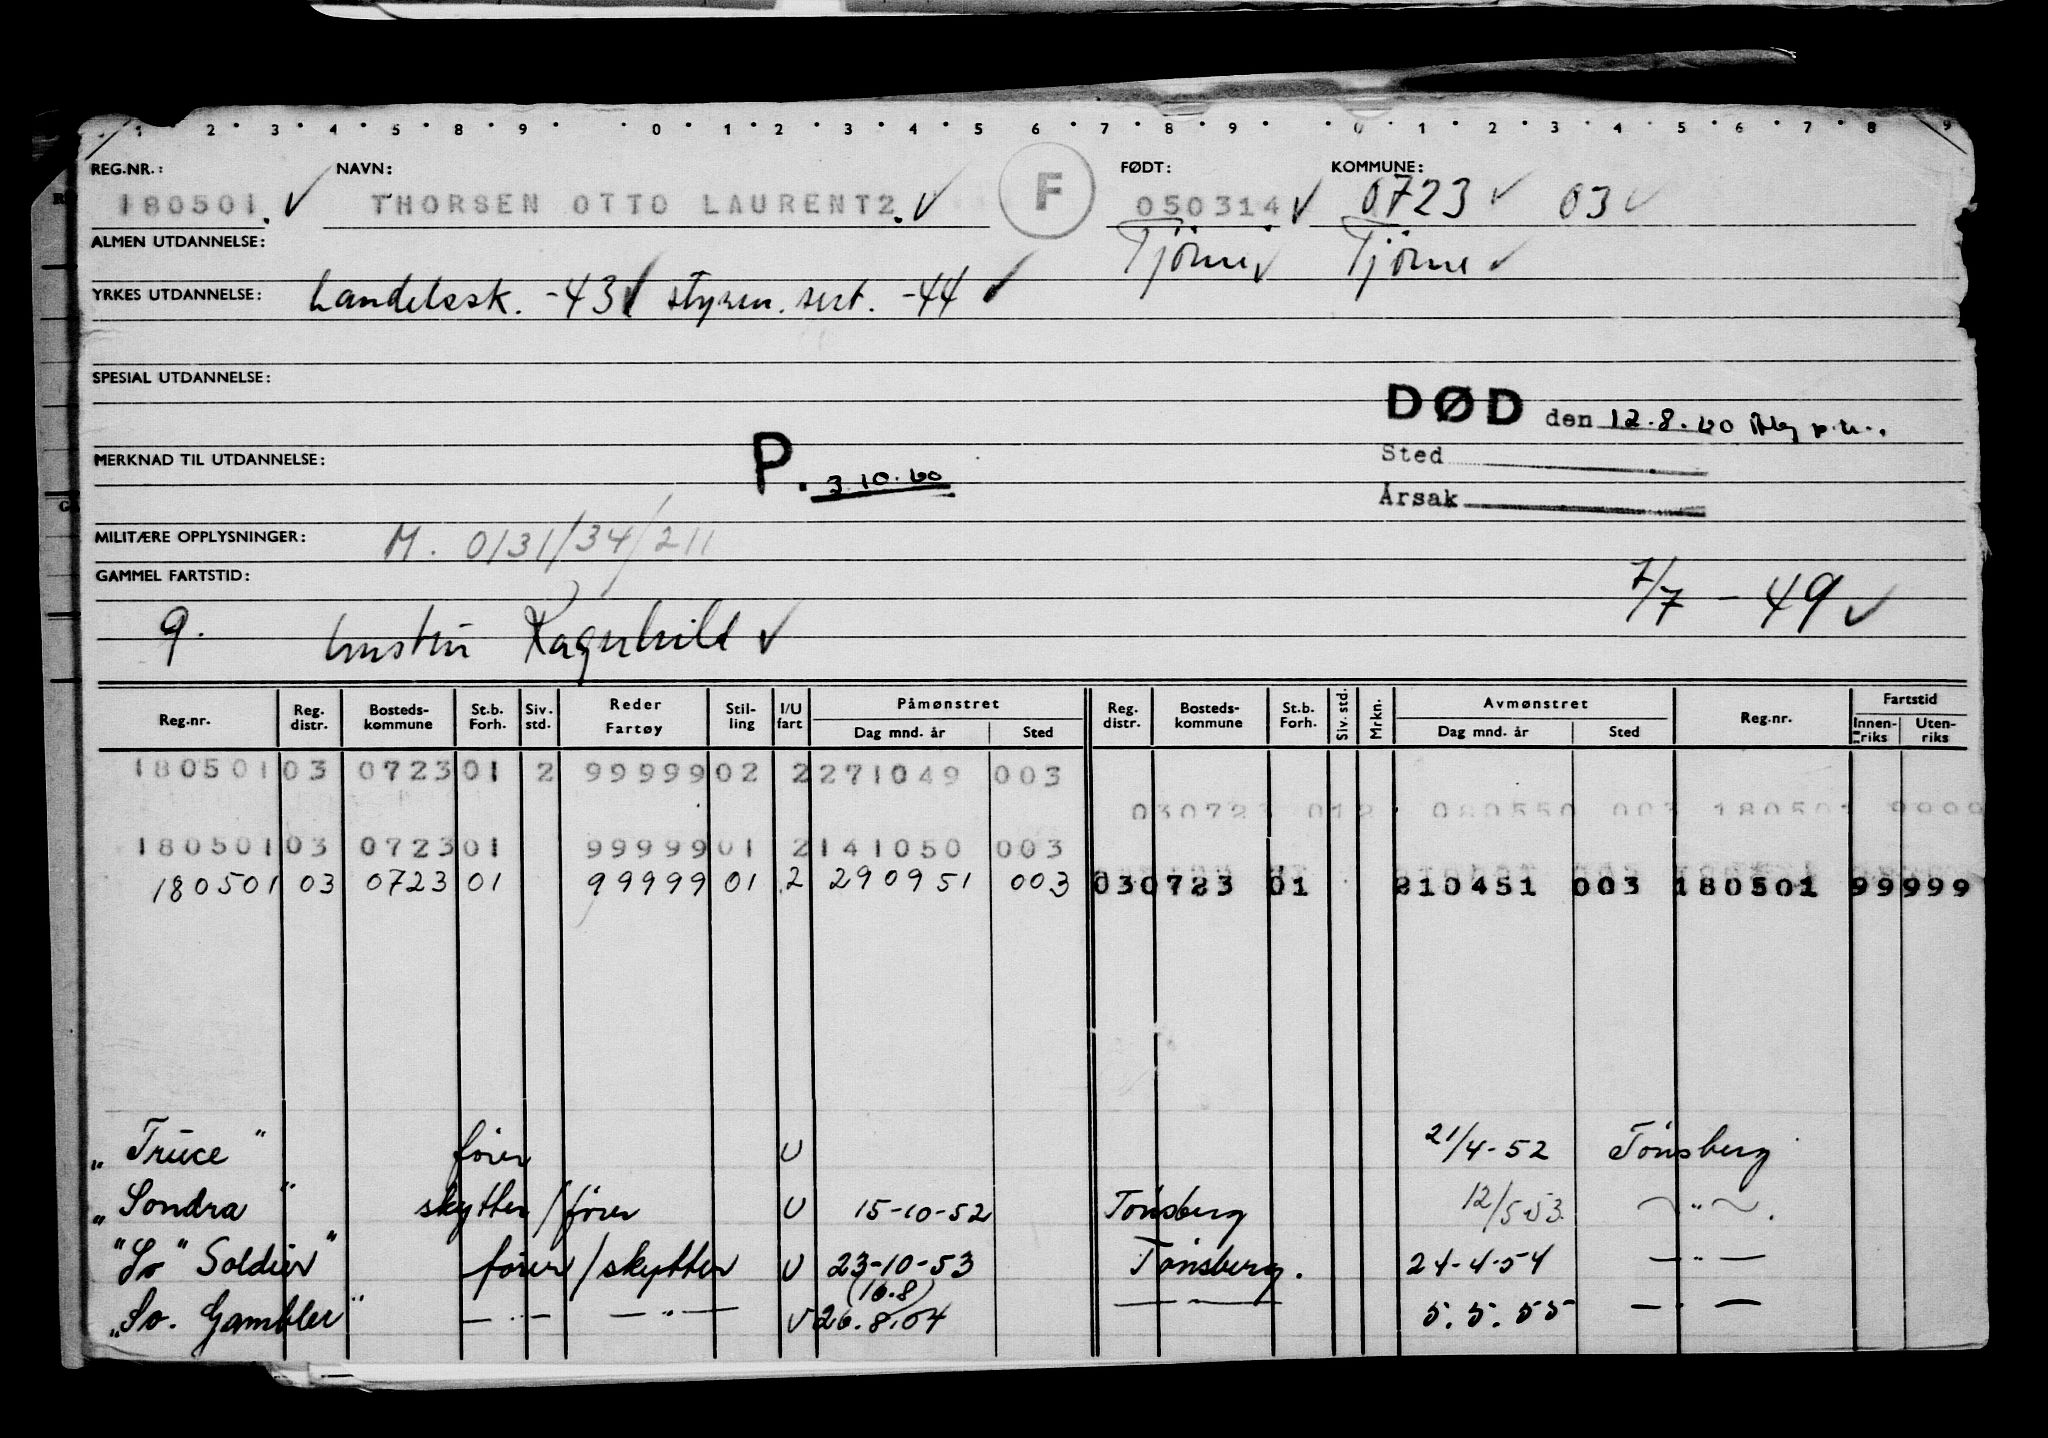 1 2 3 4 5 8 9 0 1 2 3 4 5 6 7 8 9 0 1 2 3 4 5 6 7 8 9
REG.NR.: NAVN: F FØDT: KOMMUNE:
180501. THORSEN OTTO LAURENTZ. 050314 0723 03
ALMEN UTDANNELSE: Tjöme Tjöme
YRKES UTDANNELSE: Landelssk. -43 styrm. sert. -44
SPESIAL UTDANNELSE:
DØD den 12.8.60
MERKNAD TIL UTDANNELSE: P. 3.10.60 Sted
Årsak
MILITÆRE OPPLYSNINGER: M. 0131/34/211
GAMMEL FARTSTID: 7/7 - 49
9. hustru Ragnhild
Reg.nr. Reg. distr. Bosteds-kommune St.b. Forh. Siv. std. Reder Fartøy Stil-ling I/U fart Påmønstret Dag mnd. år Sted Reg. distr. Bosteds-kommune St.b. Forh. Siv. std. Mrkn. Avmønstret Dag mnd. år Sted Reg.nr. Fartstid Innen-riks Uten-riks
180501 03 0723 01 2 99999 02 2 271049 003
030723 012 080550 003 180501 9999
180501 03 0723 01 99999 01 2 141050 003
180501 03 0723 01 99999 01 2 290951 003 030723 01 210451 003 180501 99999
„Truce" fører U 21/4-52 Tönsberg
„Sondra" skytter/fører U 15-10-52 Tönsberg 12/5 53. — " —.
"So" Soldier" fører/skytter U 23-10-53 Tönsberg. 24-4-54 — " —
(16.8)
„So. Gambler" — " — — " — U 26.8.54 — — 5.5.55 — " —